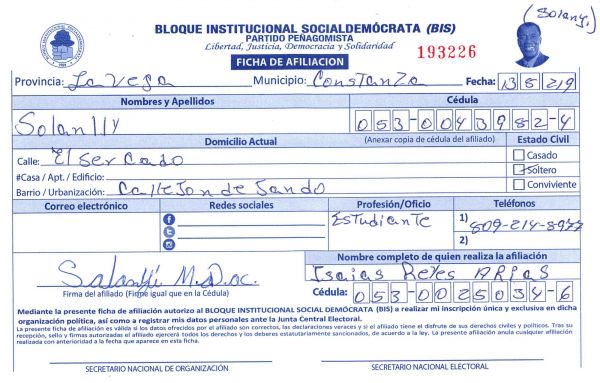 (Solany,
BLOQUE INSTITUCIONAL SOCIALDEMÓCRATA (BIS)
PARTIDO PEÑAGOMISTA
Libertad, Justicia, Democracia y Solidaridad
FICHA DE AFILIACION
193226
Provincia: La Vega Municipio: Constanza Fecha: 13 8 219
Nombres y Apellidos Cédula
Solanlly 053-0043982-4
Domicilio Actual (Anexar copia de cédula del afiliado) Estado Civil
Calle: El Sercado Casado
#Casa / Apt. / Edificio: Soltero
Barrio / Urbanización: Callejon de Sando Conviviente
Correo electrónico Redes sociales Profesión/Oficio Teléfonos
Estudiante 1) 809-214-8977
2)
Nombre completo de quien realiza la afiliación
Isaias Reyes Arias
Firma del afiliado (Firme igual que en la Cédula) Cédula: 053-0025034-6
Mediante la presente ficha de afiliación autorizo al BLOQUE INSTITUCIONAL SOCIAL DEMÓCRATA (BIS) a realizar mi inscripción única y exclusiva en dicha
organización política, así como a registrar mis datos personales ante la Junta Central Electoral.
La presente ficha de afiliación es válida si los datos ofrecidos por el afiliado son correctos, las declaraciones veraces y si el afiliado tiene el disfrute de sus derechos civiles y políticos. Tras su
recepción, sello y firmas autorizadas el afiliado ejercerá todos los derechos y los deberes estatutariamente sancionados, de acuerdo a la ley. La presente afiliación anula cualquier afiliación
realizada con anterioridad a la fecha que aparece en esta ficha.
SECRETARIO NACIONAL DE ORGANIZACIÓN SECRETARIO NACIONAL ELECTORAL